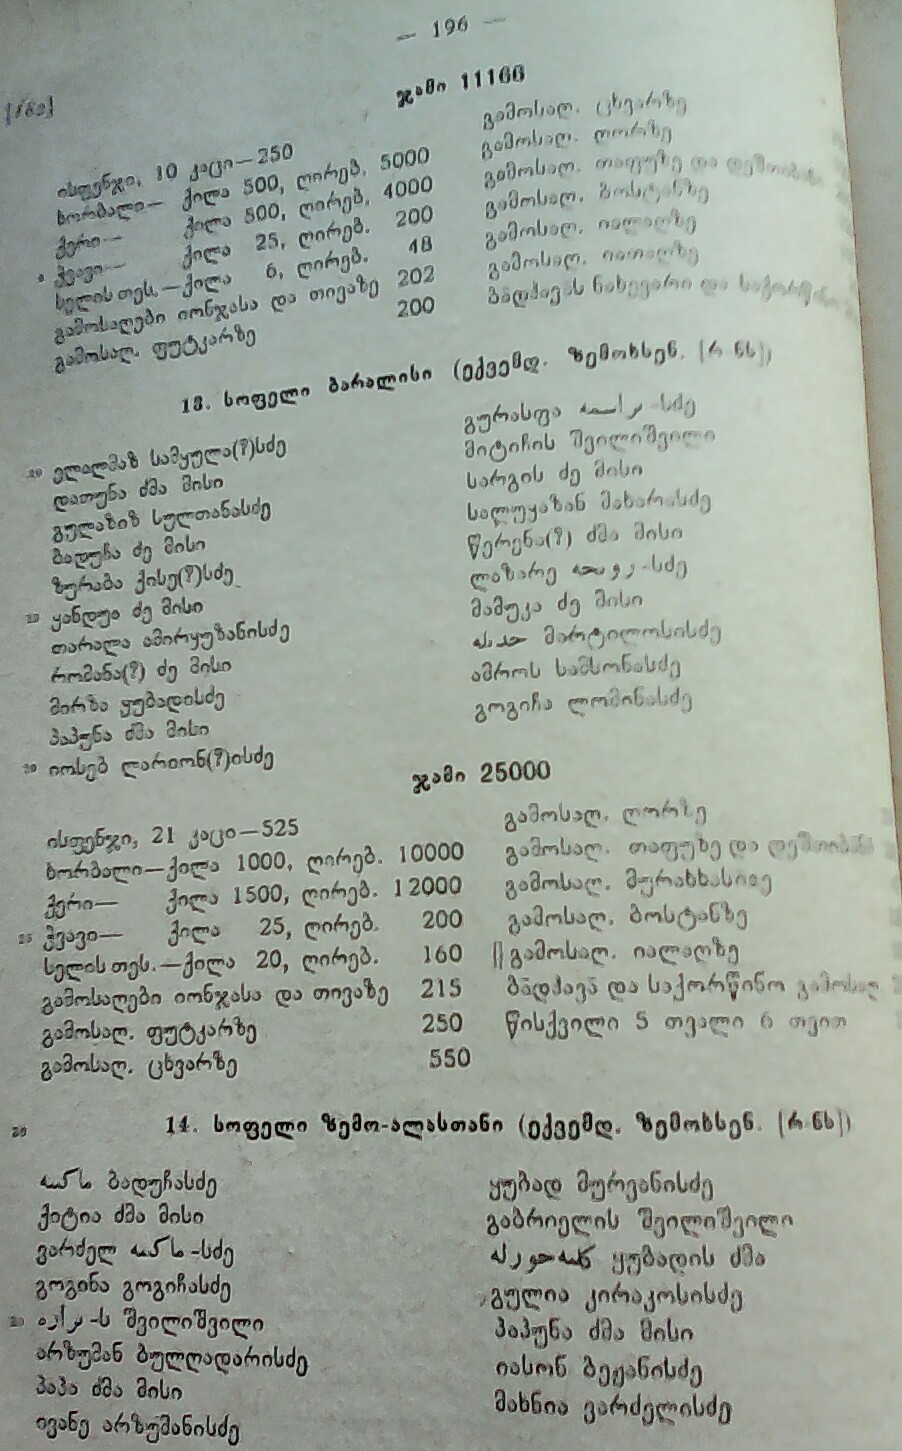 — 196 —
ჯამი 11166
ისფენჯი, 10 კაცი—250
ხორბალი— ქილა 500, ღირებ. 5000
ქერი— ქილა 500, ღირებ. 4000
ჭვავი— ქილა 25, ღირებ. 200
სელის თეს.—ქილა 6, ღირებ. 48
გამოსაღები იონჯასა და თივაზე 202
გამოსაღ. ფუტკარზე 200
გამოსაღ. ცხვარზე
გამოსაღ. ღორზე
გამოსაღ. თაფუზე და დეშთიბან
გამოსაღ. ბოსტანზე
გამოსაღ. იალაღზე
გამოსაღ. იათაღზე
ბადჰავას ნახევარი და საქორწინო
13. სოფელი ბარალისი (ექვემდ. ზემოხსენ. [რ ნს])
20 ელალმაზ სამყულა(?)სძე
დათუნა ძმა მისი
გულაზიზ სულთანასძე
ბადუჩა ძე მისი
ზურაბა ქისე(?)სძე
ყანდუა ძე მისი
თარალა ამირყუზანისძე
რომანა(?) ძე მისი
მირზა ყუბადისძე
პაპუნა ძმა მისი
30 იოსებ ლარიონ(?)ისძე
გურასფა -სძე
მიტიჩის შვილიშვილი
სარგის ძე მისი
სალუყაზან მახარასძე
წერენა(?) ძმა მისი
ლაზარე -სძე
მამუკა ძე მისი
მარტილოსისძე
ამროს სამსონასძე
გოგიჩა ლომინასძე
ჯამი 25000
ისფენჯი, 21 კაცი—525
ხორბალი—ქილა 1000, ღირებ. 10000
ქერი— ქილა 1500, ღირებ. 12000
ჭვავი— ქილა 25, ღირებ. 200
სელის თეს.—ქილა 20, ღირებ. 160
გამოსაღები იონჯასა და თივაზე 215
გამოსაღ. ფუტკარზე 250
გამოსაღ. ცხვარზე 550
გამოსაღ. ღორზე
გამოსაღ. თაფუზე და დეშთიბან
გამოსაღ. მურახხასიიე
გამოსაღ. ბოსტანზე
||გამოსაღ. იალაღზე
ბადჰავა და საქორწინო გამოსაღ
წისქვილი 5 თვალი 6 თვით
14. სოფელი ზემო-ალასთანი (ექვემდ. ზემოხსენ. [რ ნს])
ბადუჩასძე
ქიტია ძმა მისი
ვარძელ -სძე
გოგინა გოგიჩასძე
-ს შვილიშვილი
არზუმან ბულღადარისძე
პაპა ძმა მისი
ივანე არზუმანისძე
ყუბად მურვანისძე
გაბრიელის შვილიშვილი
ყუბადის ძმა
გულია კირაკოსისძე
პაპუნა ძმა მისი
იასონ ბეჟანისძე
მახნია ვარძელისძე